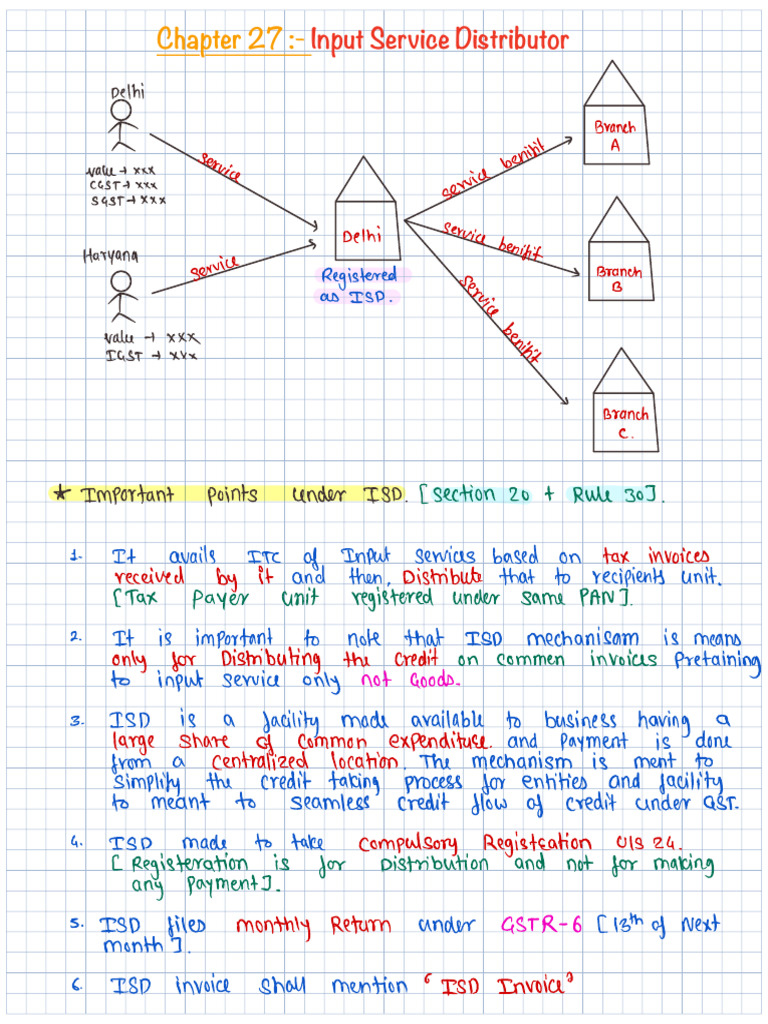 Chapter 27 :- Input Service Distributor
Delhi
value → xxx
CGST → xxx
SGST → xxx
service
Haryana
service
value → xxx
IGST → xxx
Delhi
Registered
as ISD.
service benihit
Branch
A
service benihit
Branch
B
service benihit
Branch
C.
★ Important points under ISD. [Section 20 + Rule 30].
1. It avails ITC of Input services based on tax invoices
received by it and then, Distribute that to recipients unit.
[Tax Payer unit registered under same PAN].
2. It is important to note that ISD mechanisam is means
only for Distributing the Credit on commen invoices Pretaining
to input service only not Goods.
3. ISD is a facility made available to business having a
large share of common expenditure. and Payment is done
from a centralized location. The mechanism is ment to
simplify the credit taking process for entities and facility
to meant to seamless credit flow of credit under GST.
4. ISD made to take compulsory Registration U/s 24.
[Registeration is for Distribution and not for making
any Payment].
5. ISD files monthly Return under GSTR-6 [13th of Next
month].
6. ISD invoice shall mention "ISD Invoice"